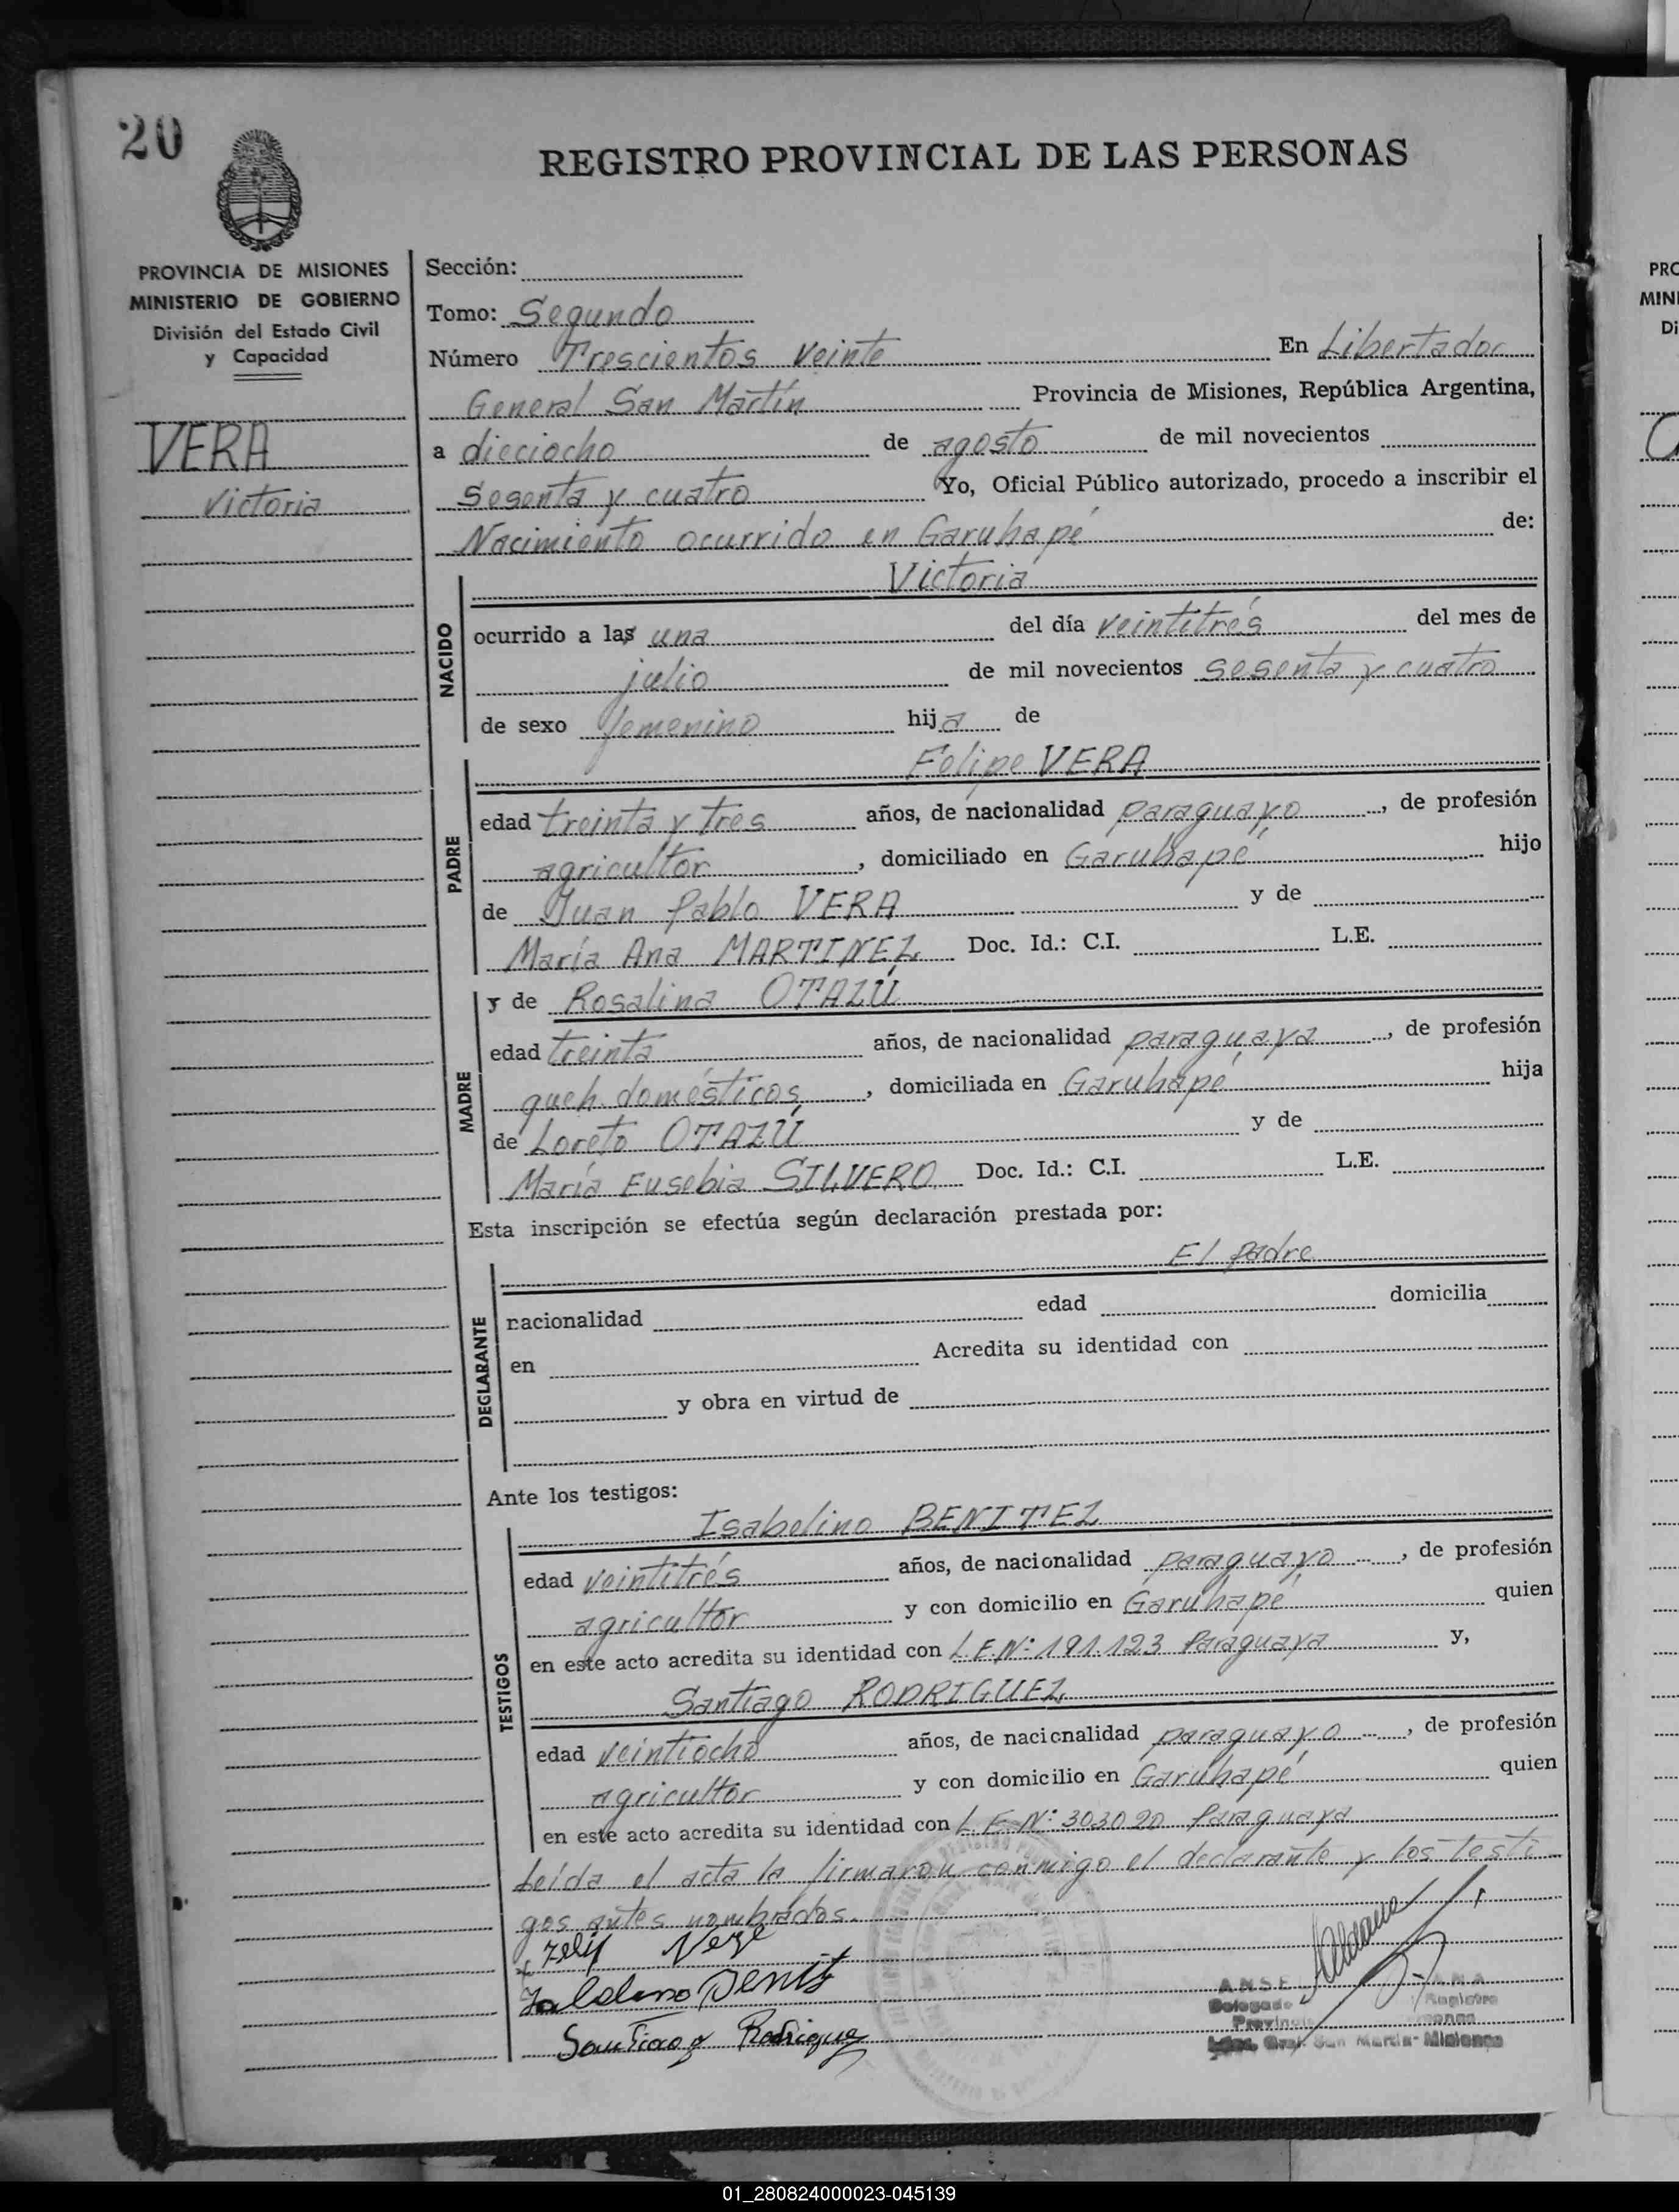 20
REGISTRO PROVINCIAL DE LAS PERSONAS
PROVINCIA DE MISIONES
MINISTERIO DE GOBIERNO
División del Estado Civil
y Capacidad
VERA
Victoria
Sección:
Tomo: Segundo
Número Trescientos veinte En Libertador
General San Martín Provincia de Misiones, República Argentina,
a dieciocho de agosto de mil novecientos
sesenta y cuatro Yo, Oficial Público autorizado, procedo a inscribir el
Nacimiento ocurrido en Garuhapé de:
Victoria
NACIDO
ocurrido a las una del día veintitrés del mes de
julio de mil novecientos sesenta y cuatro
de sexo femenino hija de
Felipe VERA
PADRE
edad treinta y tres años, de nacionalidad paraguayo, de profesión
agricultor, domiciliado en Garuhapé hijo
de Juan Pablo VERA y de
María Ana MARTINEZ Doc. Id.: C.I. L.E.
y de Rosalina OTAZÚ
MADRE
edad treinta años, de nacionalidad paraguaya, de profesión
queh. domésticos, domiciliada en Garuhapé hija
de Loreto OTAZÚ y de
María Eusebia SILVERO Doc. Id.: C.I. L.E.
Esta inscripción se efectúa según declaración prestada por:
El padre
DECLARANTE
nacionalidad edad domicilia
en Acredita su identidad con
y obra en virtud de
Ante los testigos:
Isabelino BENITEZ
TESTIGOS
edad veintitrés años, de nacionalidad paraguayo, de profesión
agricultor y con domicilio en Garuhapé quien
en este acto acredita su identidad con L.E.N: 191.123 Paraguaya y,
Santiago RODRIGUEZ
edad veintiocho años, de nacionalidad paraguayo, de profesión
agricultor y con domicilio en Garuhapé quien
en este acto acredita su identidad con L.E.N: 303020 Paraguaya
Leída el acta la firmaron conmigo el declarante y los testi-
gos antes nombrados.
Santiago Rodrigue
Delegado Registro
Gral. San Martín - Misiones
PRO
MINI
Di
01_280824000023-045139